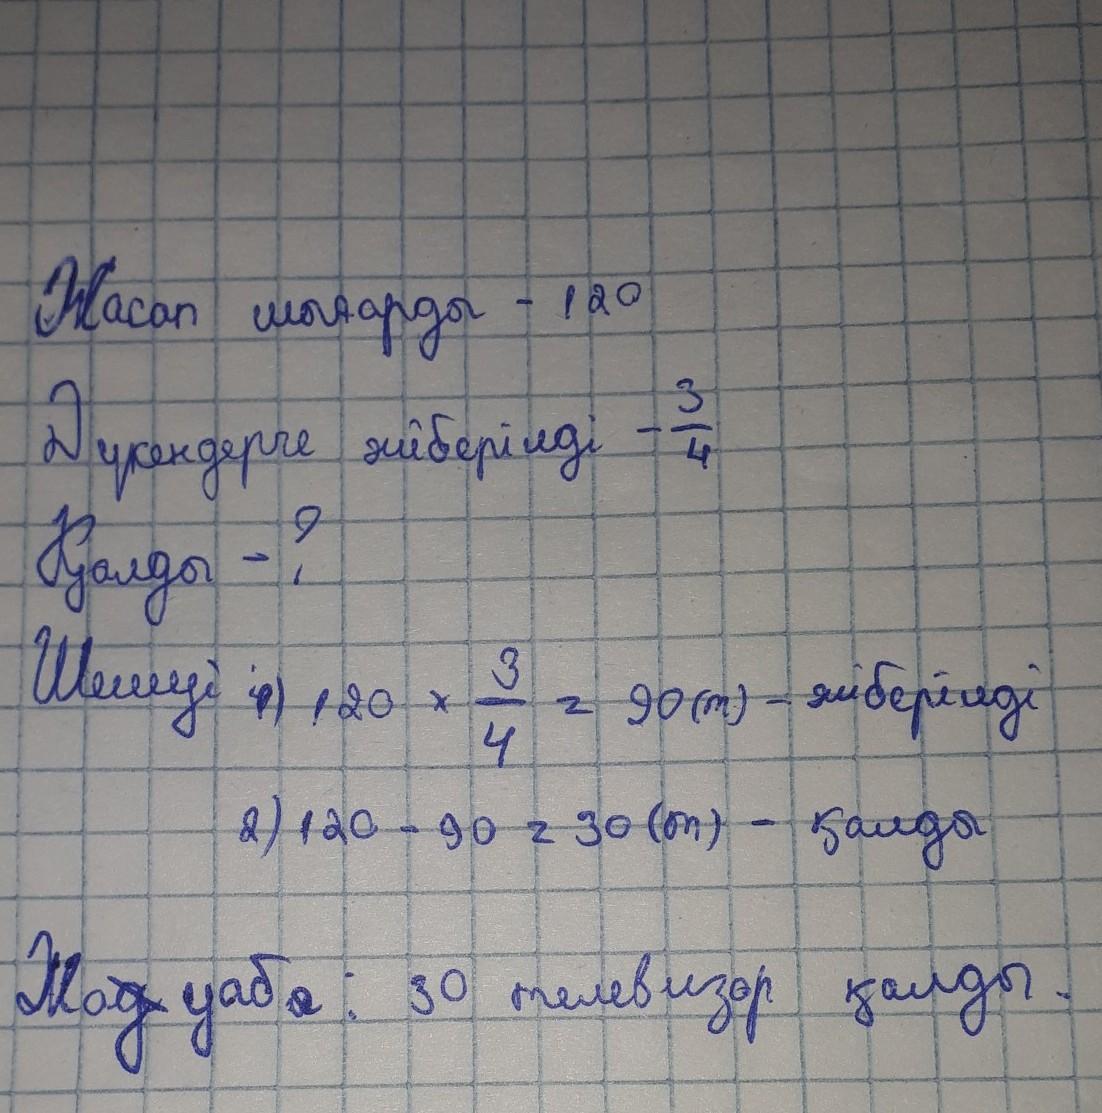 Жасап шығарды - 120
Дүкендерге жіберілді - 3/4
Қалды - ?
Шешуі 1) 120 × 3/4 = 90(т) - жіберілді
2) 120 - 90 = 30 (т) - қалды
Жауабы: 30 телевизор қалды.